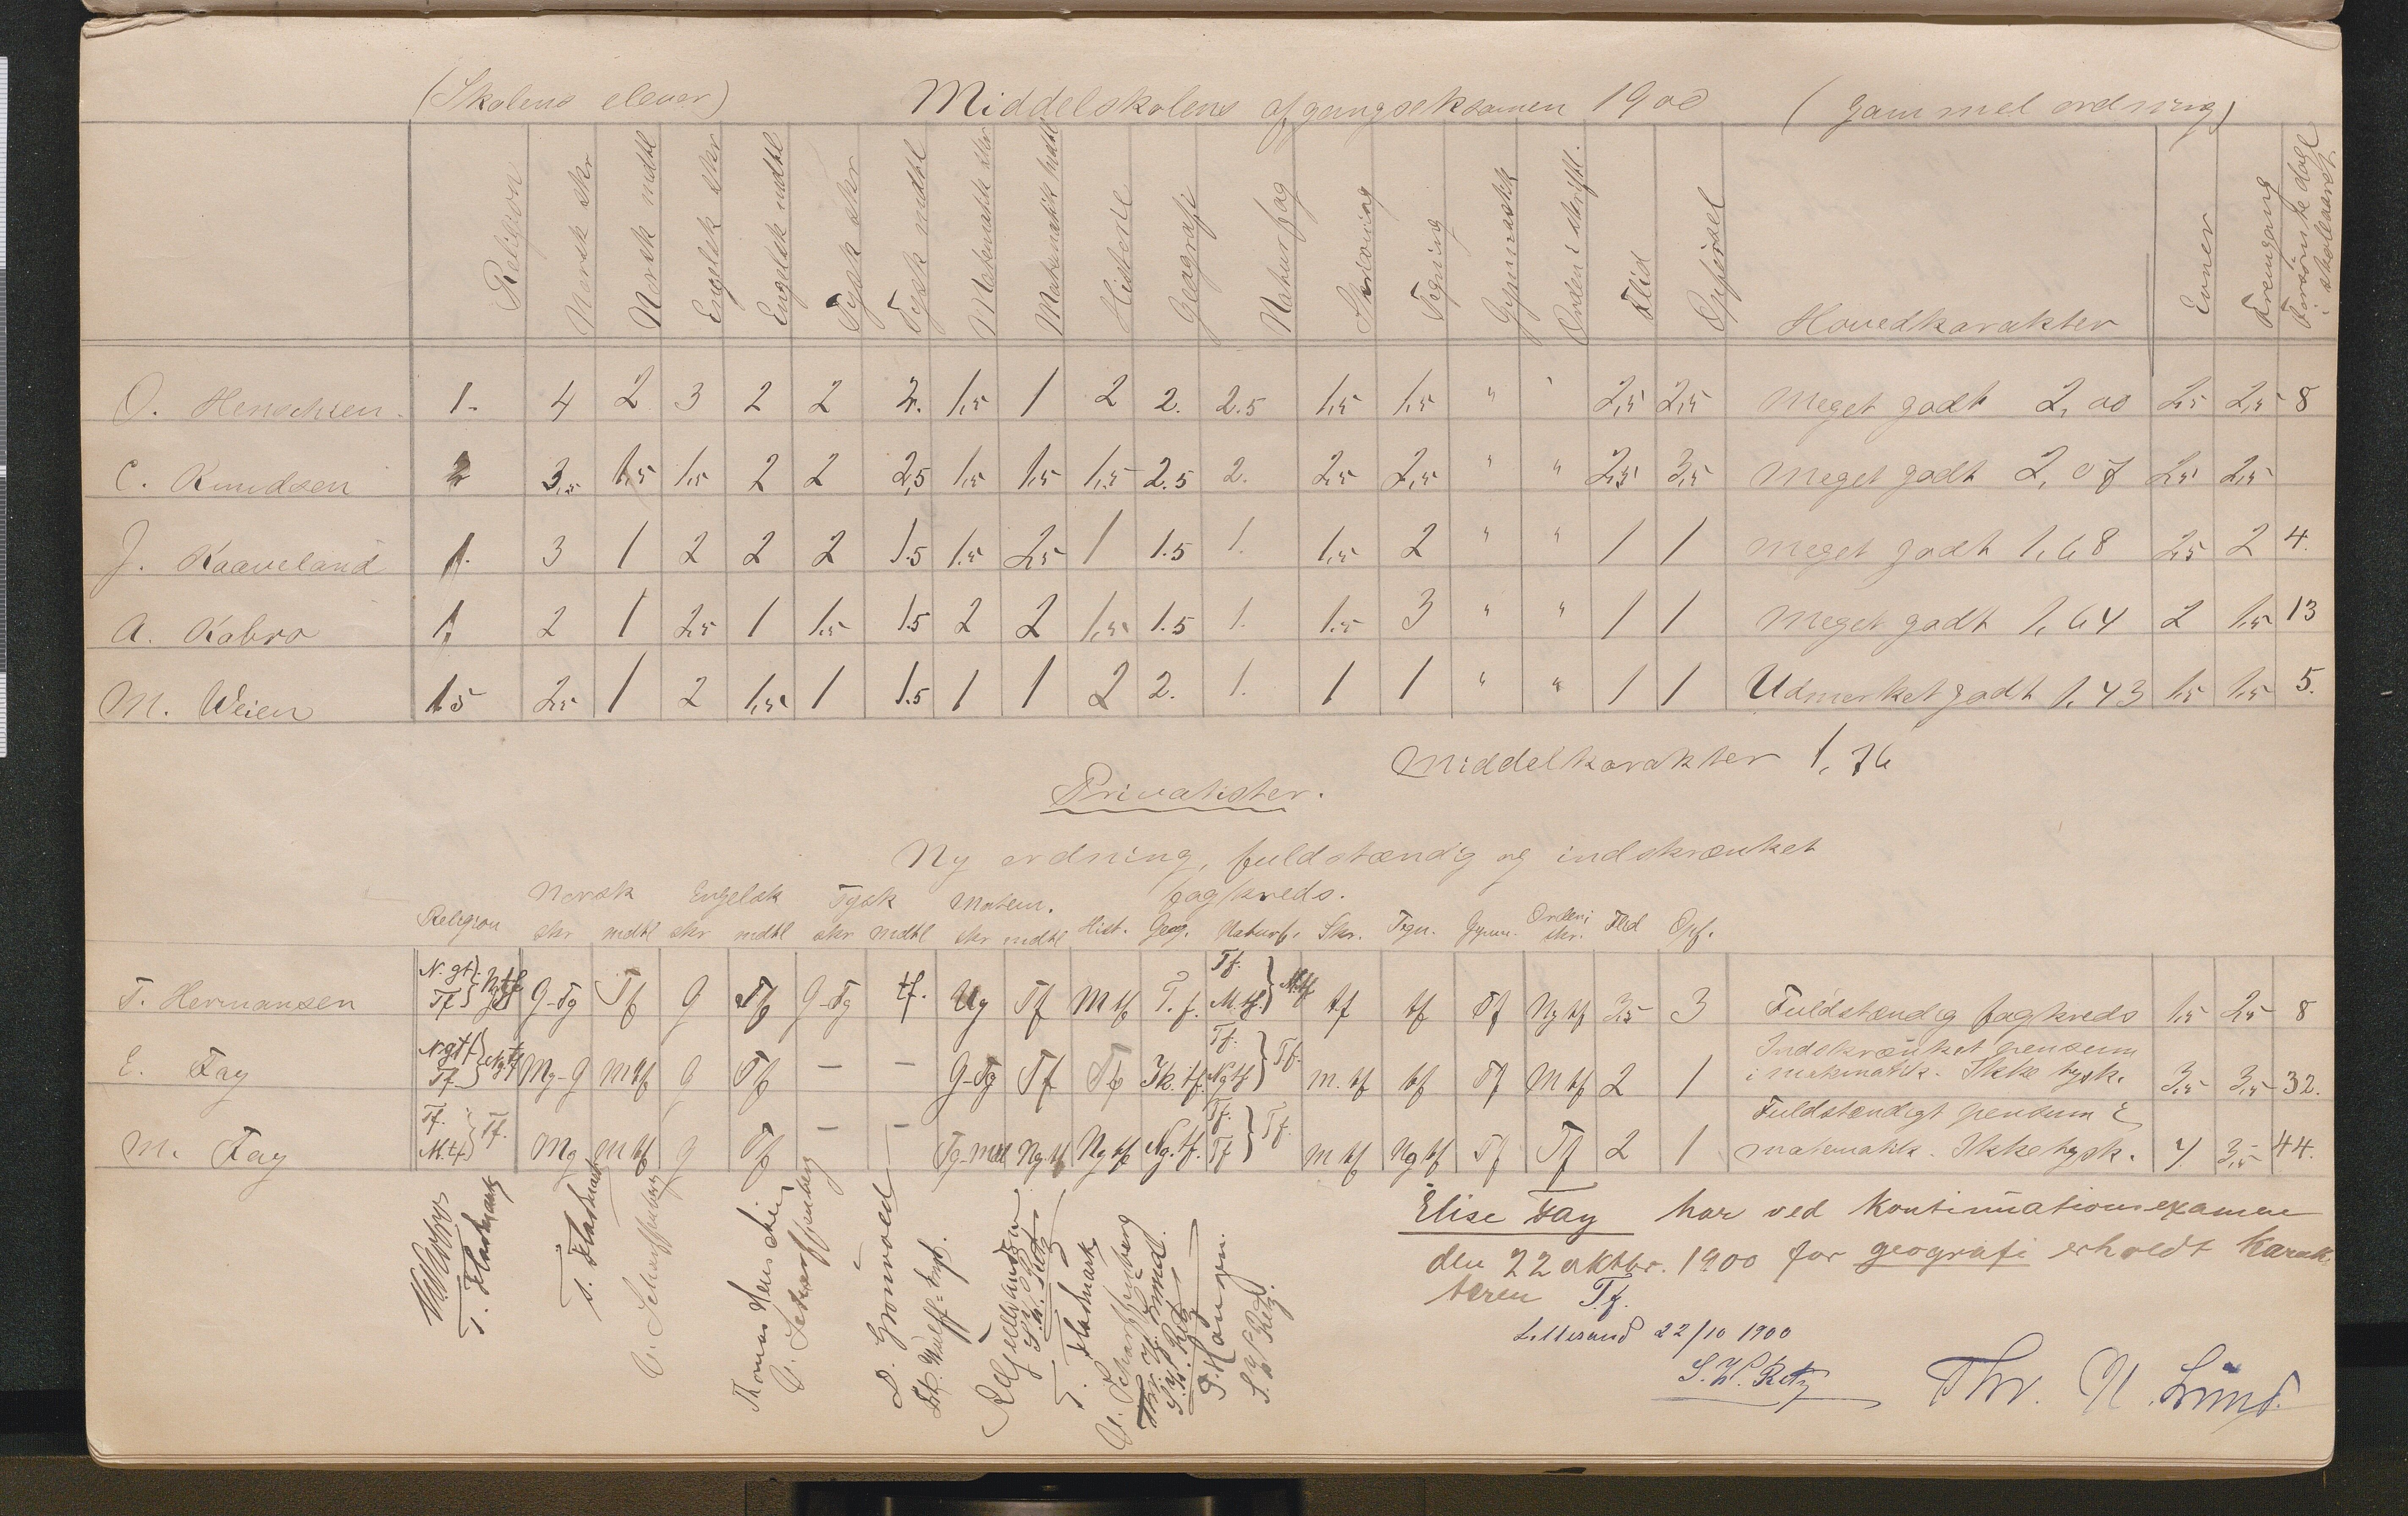 (Skolens elever) Middelskolens afgangseksamen 1900 (gammel ordning)
Religion Norsk skr Norsk mdtl Engelsk skr Engelsk mdtl Tysk skr Tysk mdtl Matematik skr Matematik mdtl Historie Geografi Naturfag Skrivning Tegning Gymnastik Orden i skriftl. Flid Opførsel Hovedkarakter Evner Fremgang Forsømte dage i skoleaaret.
O. Henochsen. 1. 4 2 3 2 2 2. 1,5 1 2 2. 2.5 1,5 1,5 " " 2,5 2,5 Meget godt 2,00 2,5 2,5 8
C. Knudsen 2 3,5 1,5 1,5 2 2 2,5 1,5 1,5 1,5 2.5 2. 2,5 2,5 " " 2,5 3,5 Meget godt 2,07 2,5 2,5
J. Kaaveland 1. 3 1 2 2 2 1.5 1,5 2,5 1 1.5 1. 1,5 2 " " 1 1 Meget godt 1,68 2,5 2 4.
A. Kabro 1, 2 1 2,5 1 1,5 1.5 2 2 1,5 1.5 1. 1,5 3 " " 1 1 Meget godt 1,64 2 1,5 13
M. Weien 1.5 2,5 1 2 1,5 1 1.5 1 1 2 2. 1. 1 1 " " 1 1 Udmerket godt 1,43 1,5 1,5 5.
Middelkarakter 1,76
Privatister.
Ny ordning, fuldstændig og indskrænket
fagkreds.
Norsk Engelsk Tysk Matem.
Religion skr mdtl skr mdtl skr mdtl skr mdtl Hist. Geog. Naturf. Skr. Tegn. Gymn. Orden i skr. Flid Opf.
N.gtf. Tf.
T. Hermansen Tf G-Tg Tf G Tf G-Tg tf. Ug Tf M tf T.f. M.tf. M.tf tf tf Tf Ng tf 3,5 3 Fuldstændig fagkreds 1,5 2,5 8
N.gtf. Tf. Indskrænket pensum
E. Fay Tf. Ng.tf Mg-G mtf G Tf — — G-Tg Tf Tf Ik.tf. Ngtf Tf. m.tf tf Tf Mtf 2 1 i matematik. Ikke tysk. 3,5 3,5 32.
Tf. Tf. Fuldstændigt pensum i
M. Fay M.tf. Tf. Mg mtf G Tf — — Tg-md Ng.tf Ng tf Ng.tf. Tf Tf. m tf Ng tf Tf Tf 2 1 matematik. Ikke tysk. 4 3,5 44.
T. Flatmark
T. Flatmark
C. Scharffenberg
C. Scharffenberg
D. Grønvold
T. Flatmark
C. Scharffenberg
S.W. Retz.
Elise Fay har ved kontinuationsexamen
den 22 oktbr. 1900 for geografi erholdt karak
teren Tf.
Lillesand 22/10 1900
S.W. Retz Thr. N. Lund.